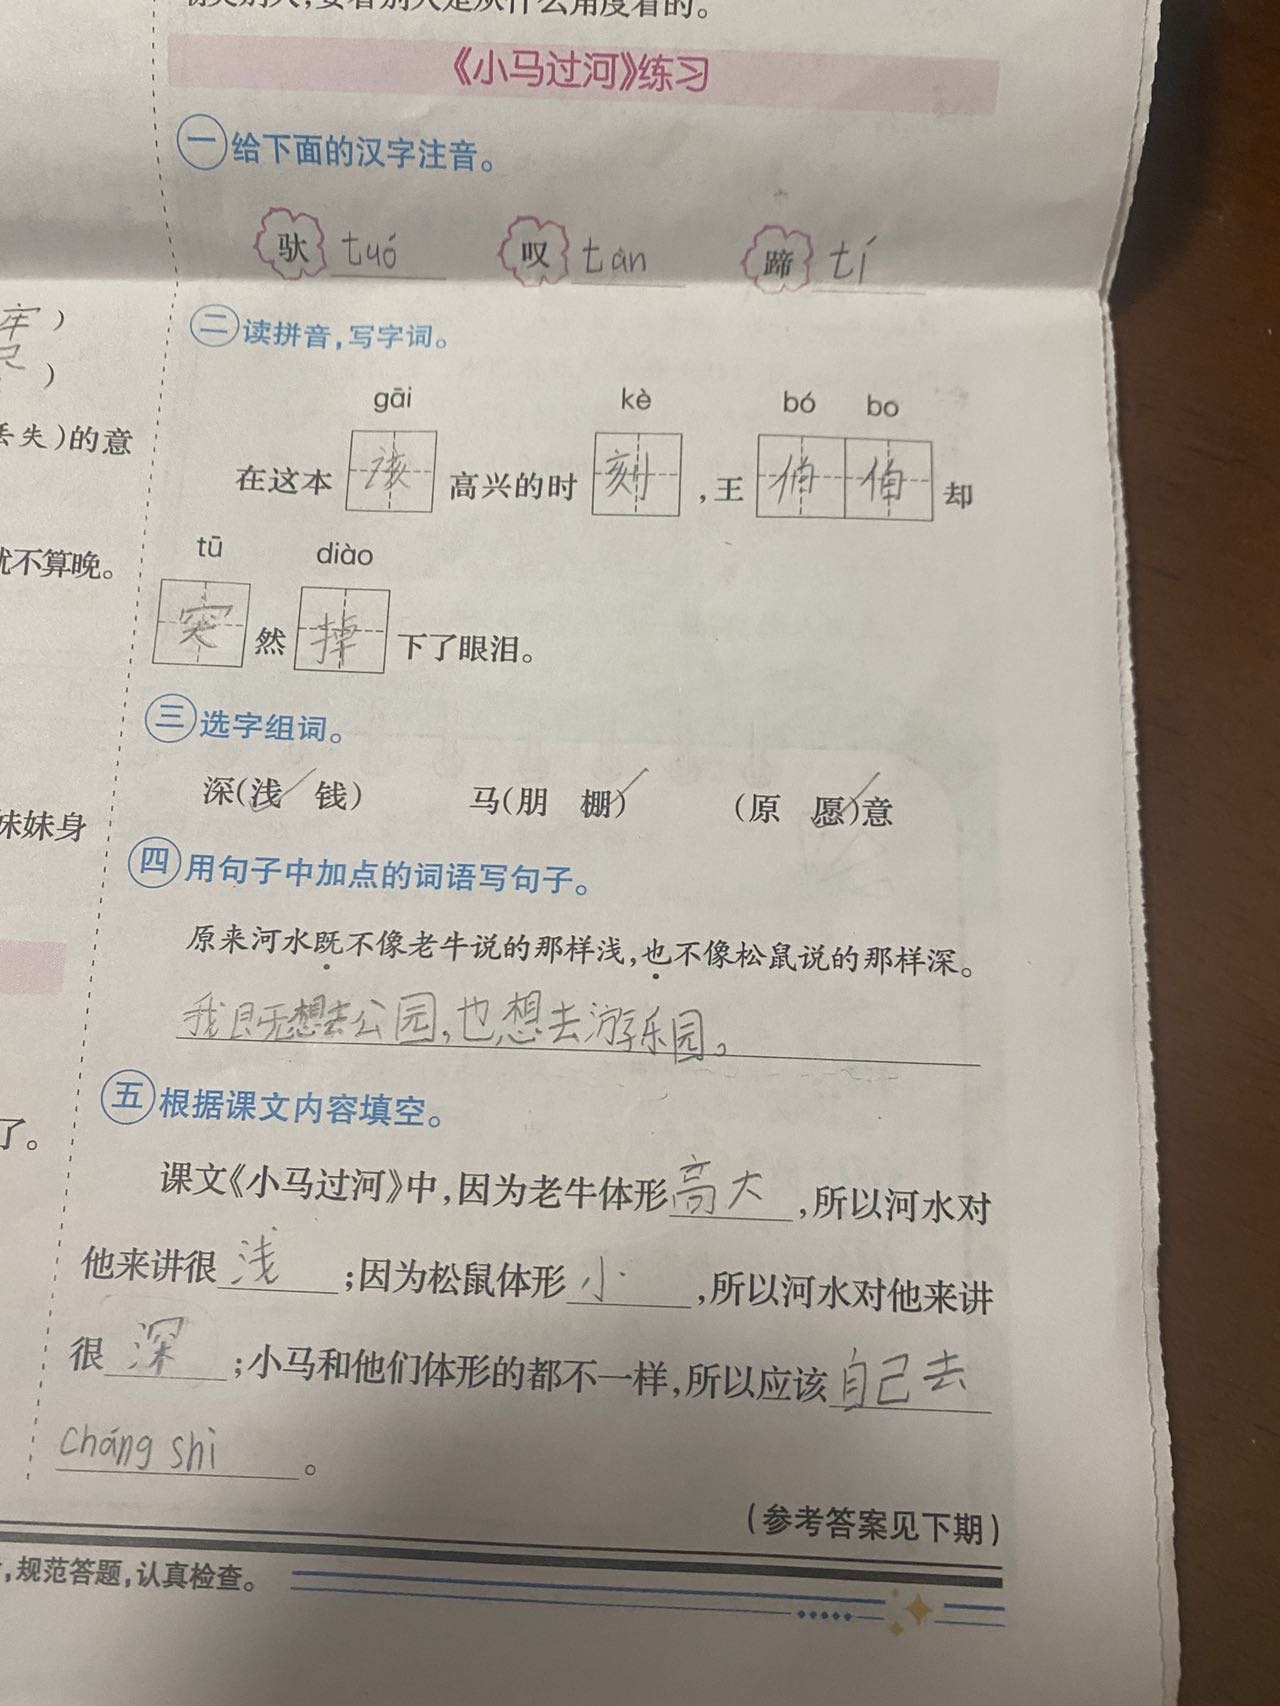 物类别人,要看别人是从什么角度看的。
《小马过河》练习
一 给下面的汉字注音。
驮 tuó 叹 tan 蹄 tí
二 读拼音,写字词。
gāi kè bó bo
在这本 该 高兴的时 刻 ,王 伯 伯 却
tū diào
突 然 掉 下了眼泪。
三 选字组词。
深(浅 钱) 马(朋 棚) (原 愿)意
四 用句子中加点的词语写句子。
原来河水既不像老牛说的那样浅,也不像松鼠说的那样深。
我既想去公园,也想去游乐园。
五 根据课文内容填空。
课文《小马过河》中,因为老牛体形高大,所以河水对
他来讲很 浅 ;因为松鼠体形 小 ,所以河水对他来讲
很 深 ;小马和他们体形的都不一样,所以应该自己去
cháng shì 。
(参考答案见下期)
牢)
)
丢失)的意
就不算晚。
妹妹身
了。
,规范答题,认真检查。